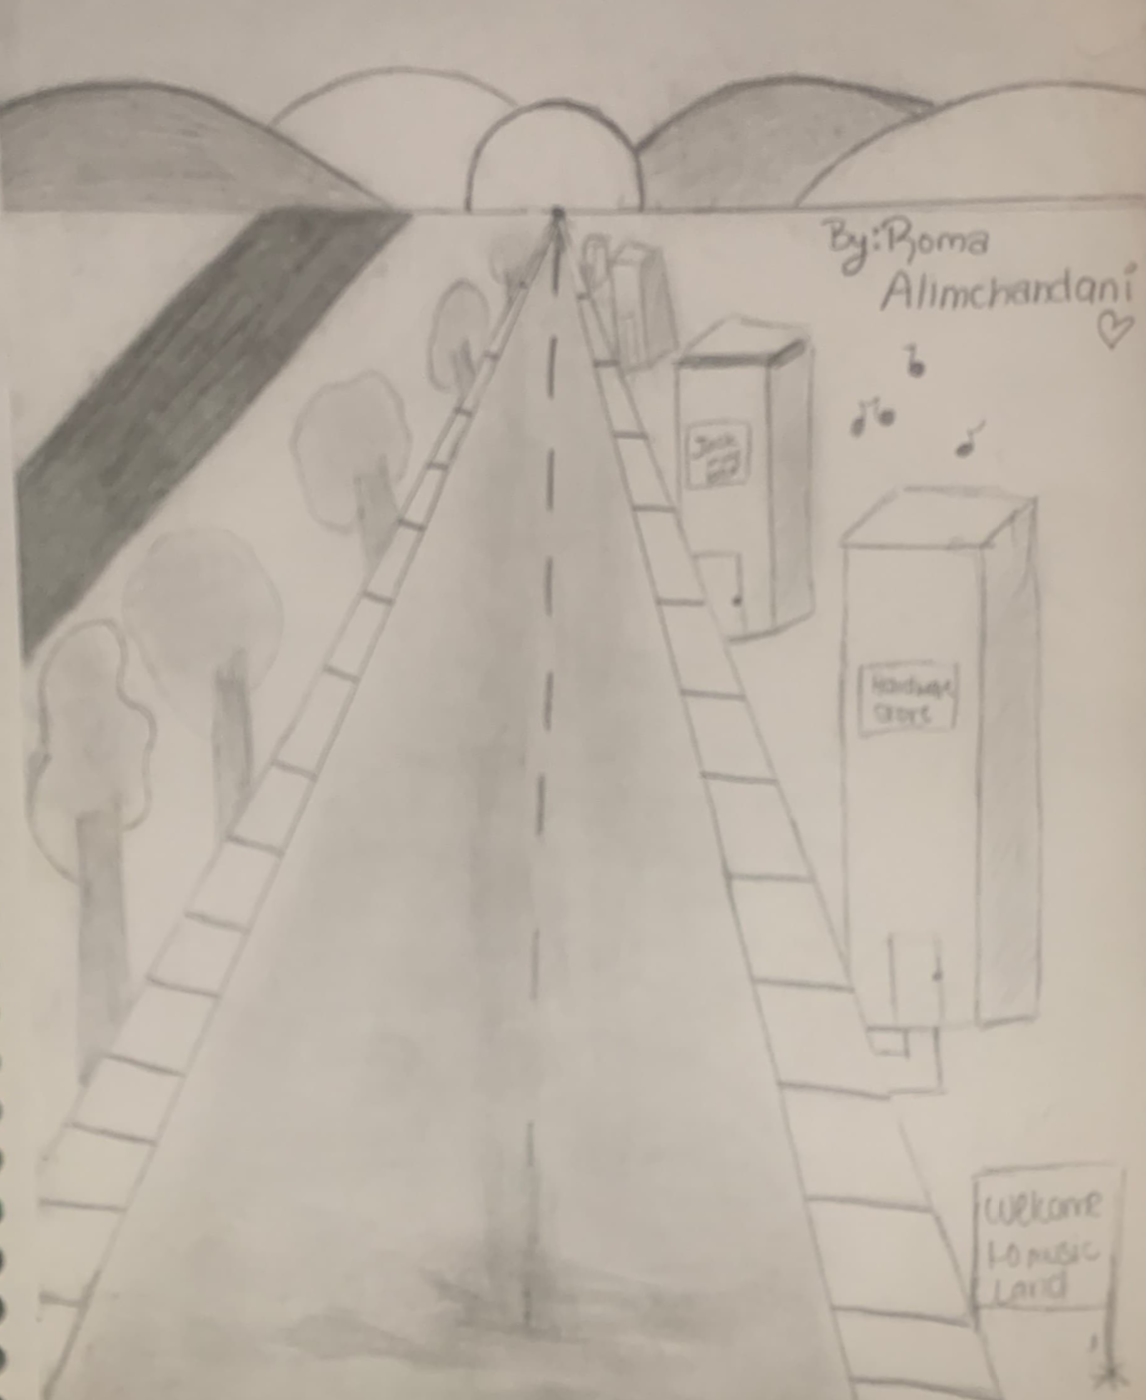 By: Roma
Alimchandani
Hardware
Store
Welcome
to music
Land